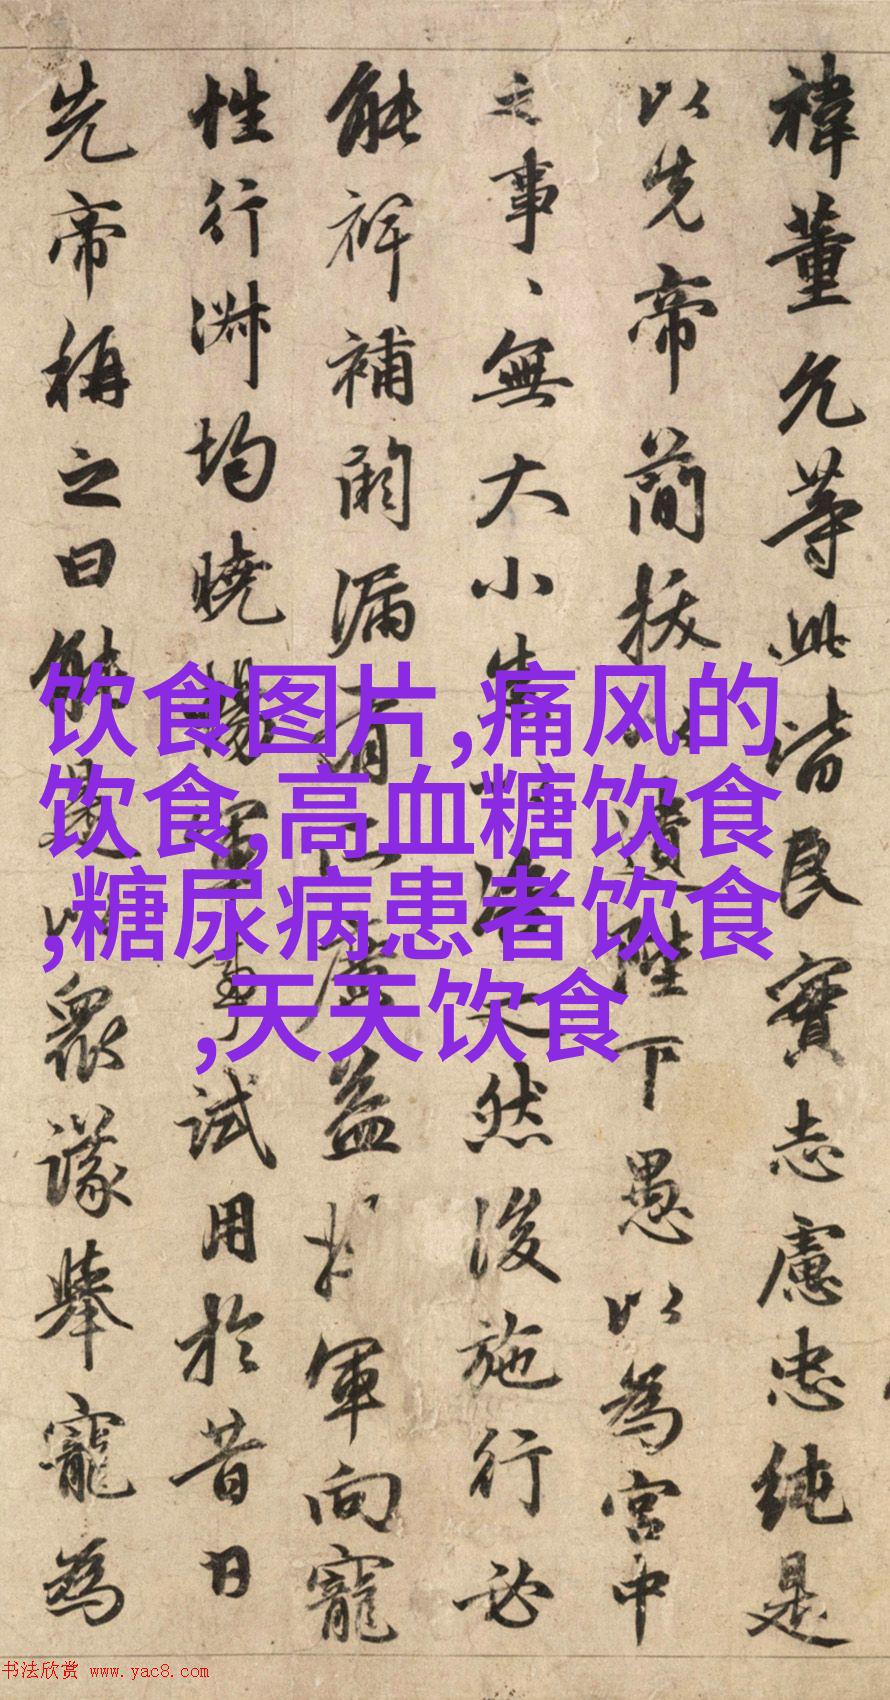 禕董允等此皆良實志慮忠純是
以先帝簡拔以遺陛下愚以為宮中
之事、、無大小悉以咨之然後施行必
能裨補闕漏有所廣益將軍向寵
性行淑均曉暢軍事試用於昔日
先帝稱之曰能是以眾議舉寵為
饮食图片,痛风的
饮食,高血糖饮食
,糖尿病患者饮食
,天天饮食
书法欣赏 www.yac8.com